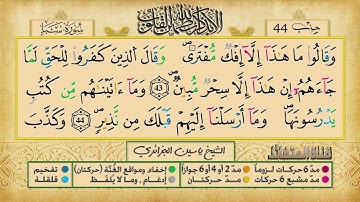 سورة سبأ
ألا بذكر الله تطمئن القلوب
حزب 44
وَقَالُوا۟ مَا هَـٰذَآ إِلَّآ إِفْكٌ مُّفْتَرًى ۚ وَقَالَ ٱلَّذِينَ كَفَرُوا۟ لِلْحَقِّ لَمَّا
جَآءَهُمْ إِنْ هَـٰذَآ إِلَّا سِحْرٌ مُّبِينٌ 43 وَمَآ ءَاتَيْنَـٰهُم مِّن كُتُبٍ
يَدْرُسُونَهَا ۖ وَمَآ أَرْسَلْنَآ إِلَيْهِمْ قَبْلَكَ مِن نَّذِيرٍ 44 وَكَذَّبَ
الشيخ ياسين الجزائري
مدّ 6 حركات لزوماً مدّ 2 أو 4 أو 6 جوازاً إخفاء، ومواقع الغُنَّة (حركتان) تفخيم
مدّ مشبع 6 حركات مدّ حركتان إدغام، وما لا يُلفَظ قلقلة